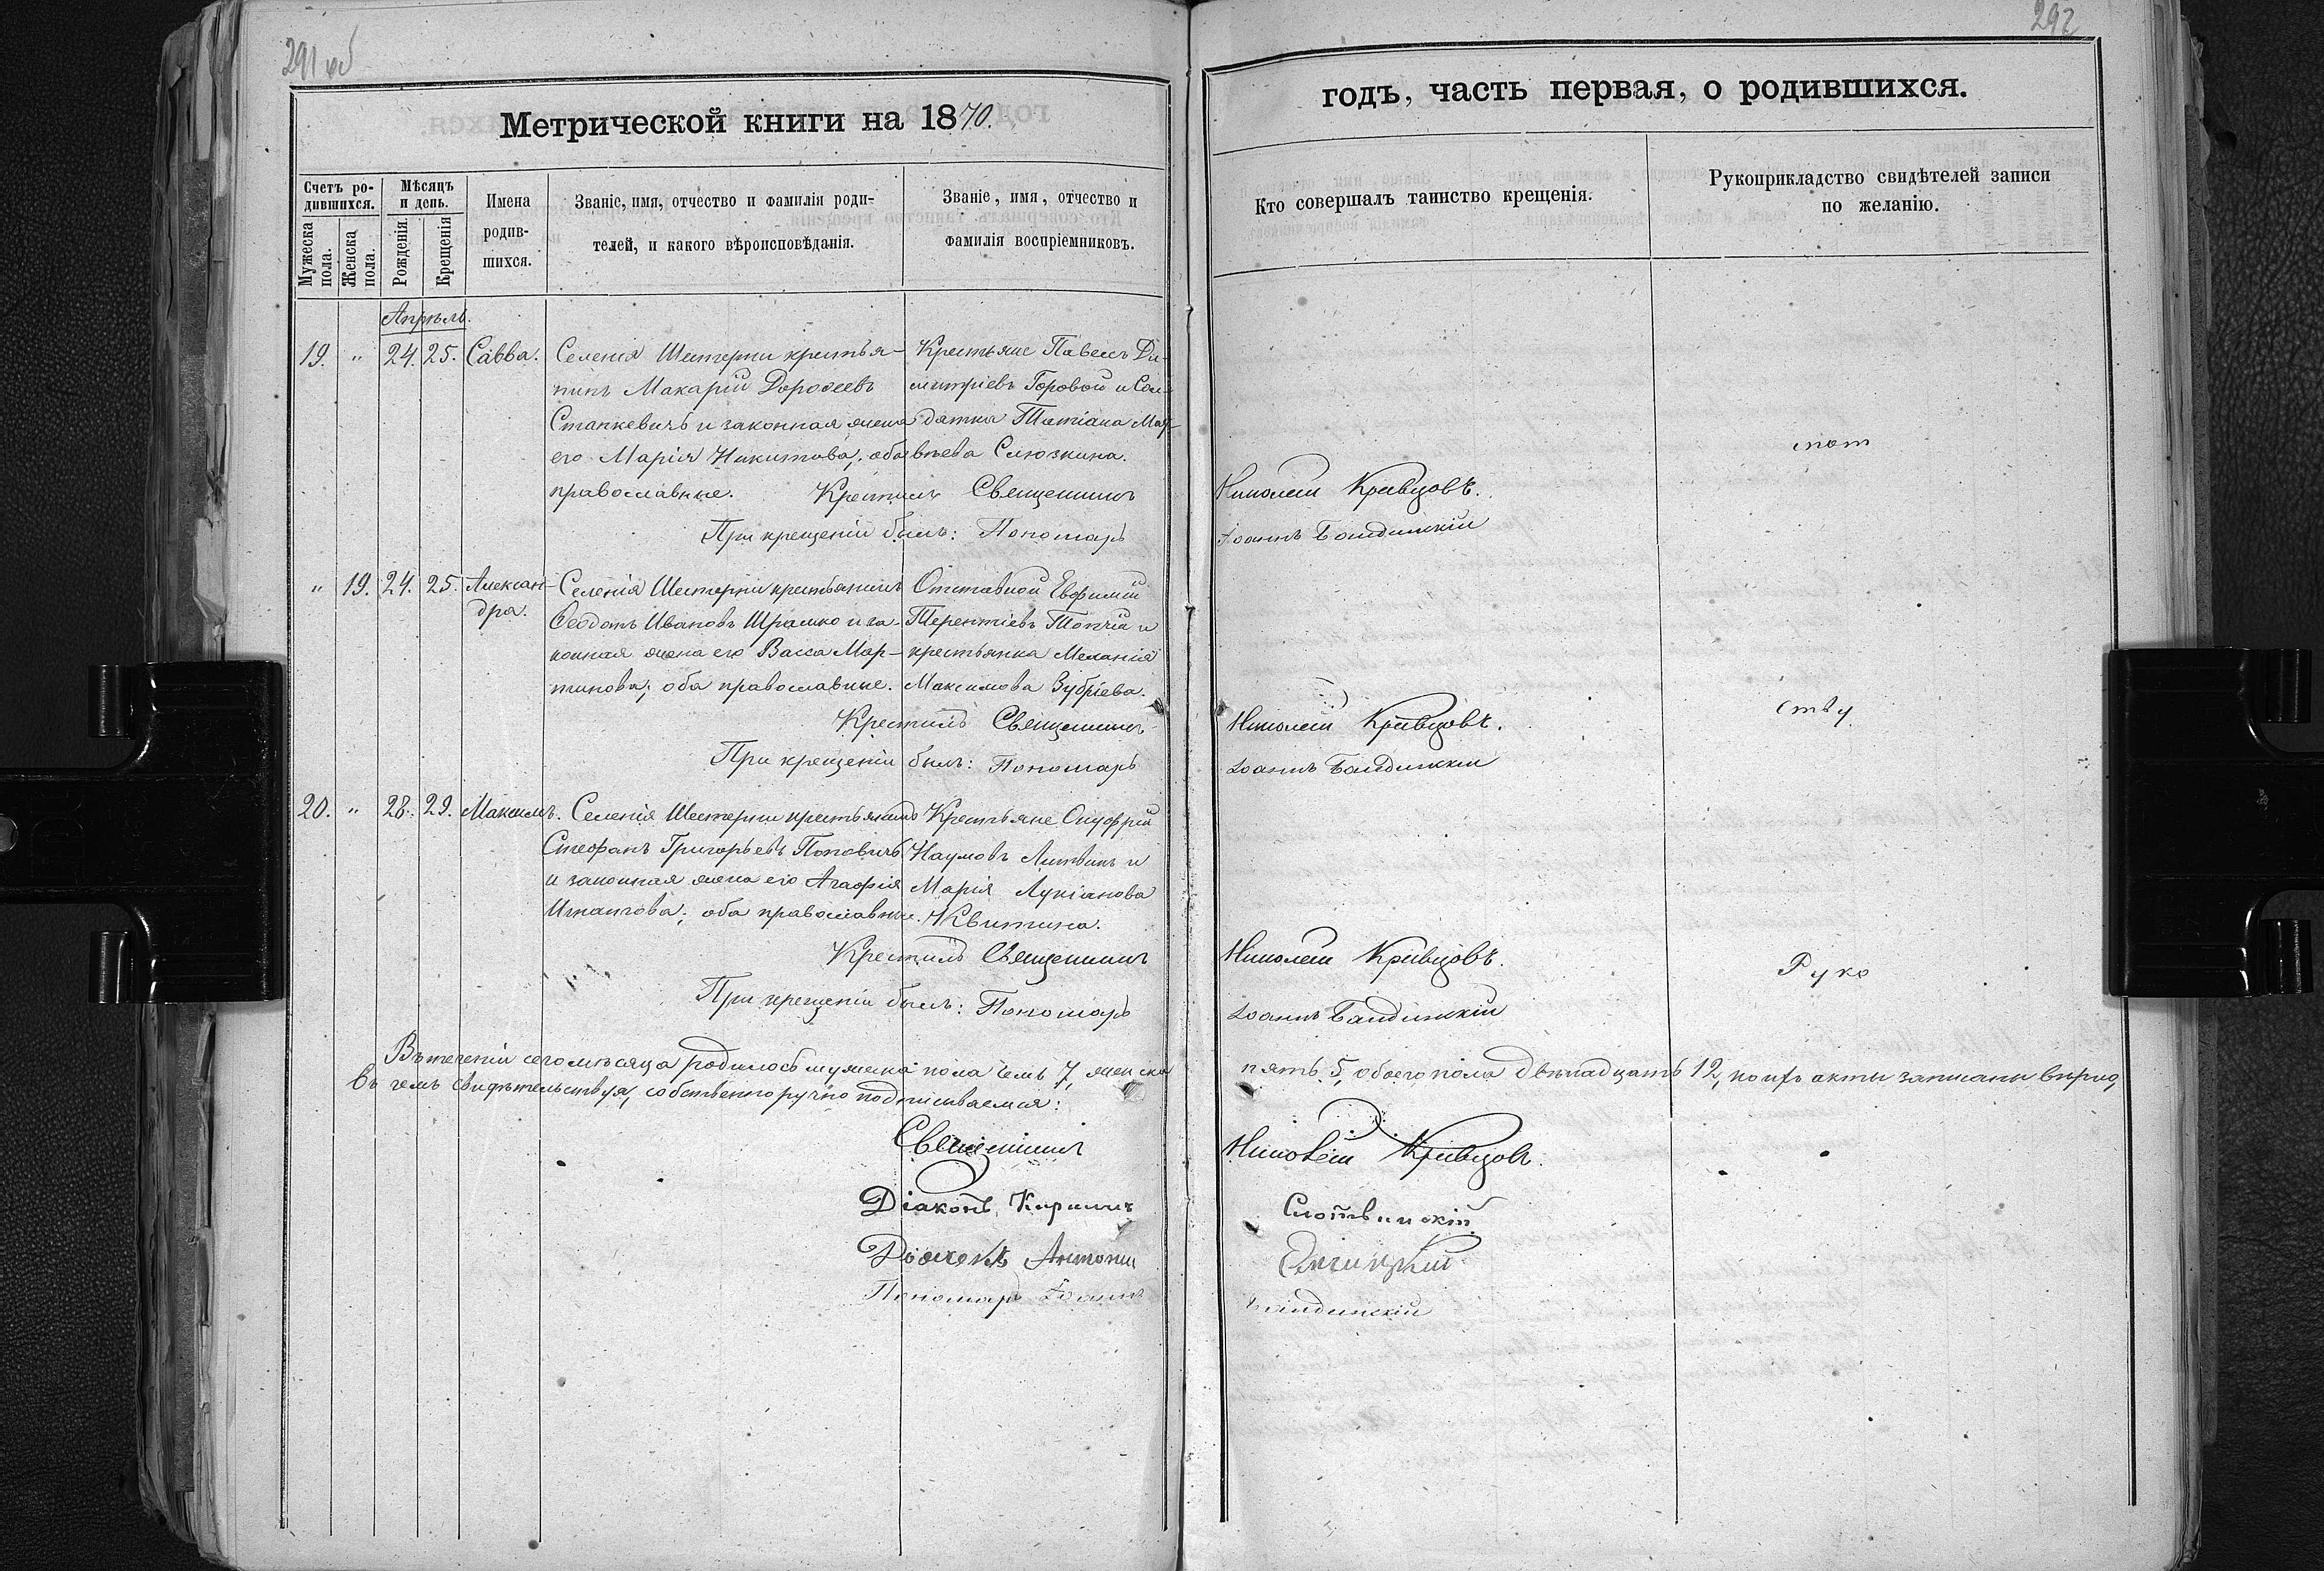 291 об
292
Метрической книги на 1870.
годъ, часть первая, о родившихся.
Счетъ ро-
дившихся.
Мужеска пола.
Женска пола.
Мѣсяцъ
и день.
Рожденія.
Крещенія
Имена
родив-
шихся.
Званіе, имя, отчество и фамилія роди-
телей, и какого вѣроисповѣданія.
Званіе, имя, отчество и
фамилія воспріемниковъ.
Кто совершалъ таинство крещенія.
Рукоприкладство свидѣтелей записи
по желанію.
Апрѣль.
19. " 24. 25. Савва.
Селенія Шестерни крестья-
нинъ Макарій Дороѳеевъ
Станкевичъ и законная жена
его Марія Никитова; оба
православные.
Крестьяне Павелъ Ди-
митріевъ Горовой и Сол-
датка Татіана Мат-
вѣева Слюзкина.
Крестилъ Священникъ
Николай Кривцовъ.
При крещеніи былъ: Пономарь
Іоаннъ
" 19. 24. 25. Алексан-
дра.
Селенія Шестерни крестьянинъ
Ѳеодотъ Ивановъ Шрамко и за-
конная жена его Васса Мар-
тинова; оба православные.
Отставной Евфимій
Терентіевъ Топчій и
крестьянка Меланія
Максимова Зубріева.
Крестилъ Священникъ
Николай Кривцовъ.
При крещеніи былъ: Пономарь
Іоаннъ
20. " 28. 29. Максимъ.
Селенія Шестерни крестьянинъ
Стефанъ Григорьевъ Поповичъ
и законная жена его Агафія
Игнатова; оба православные.
Крестьяне Онуфрій
Наумовъ Литвинъ и
Марія Лукіанова
Квитина.
Крестилъ Священникъ
Николай Кривцовъ.
При крещеніи былъ: Пономарь
Іоаннъ
Руко
Въ теченіи сего мѣсяца родилось мужеска пола семь 7, женска
пять 5, обоего пола двѣнадцать 12,
въ чемъ свидѣтельствуя, собственноручно подписываемся:
Священникъ
Николай Кривцовъ.
Діаконъ Кириллъ
Слотвинскій
Дьячекъ Антоній
Пономарь Іоаннъ